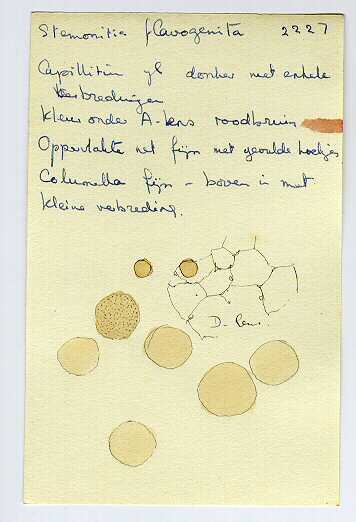 Stemonitis flavogenita 2227
Capillitium donker met enkele
verbredingen
Kleur onder A-lens roodbruin
Oppervlakte net fijn met geronde hoekjes
Columella fijn - boven in met
kleine verbreding.
D-lens.